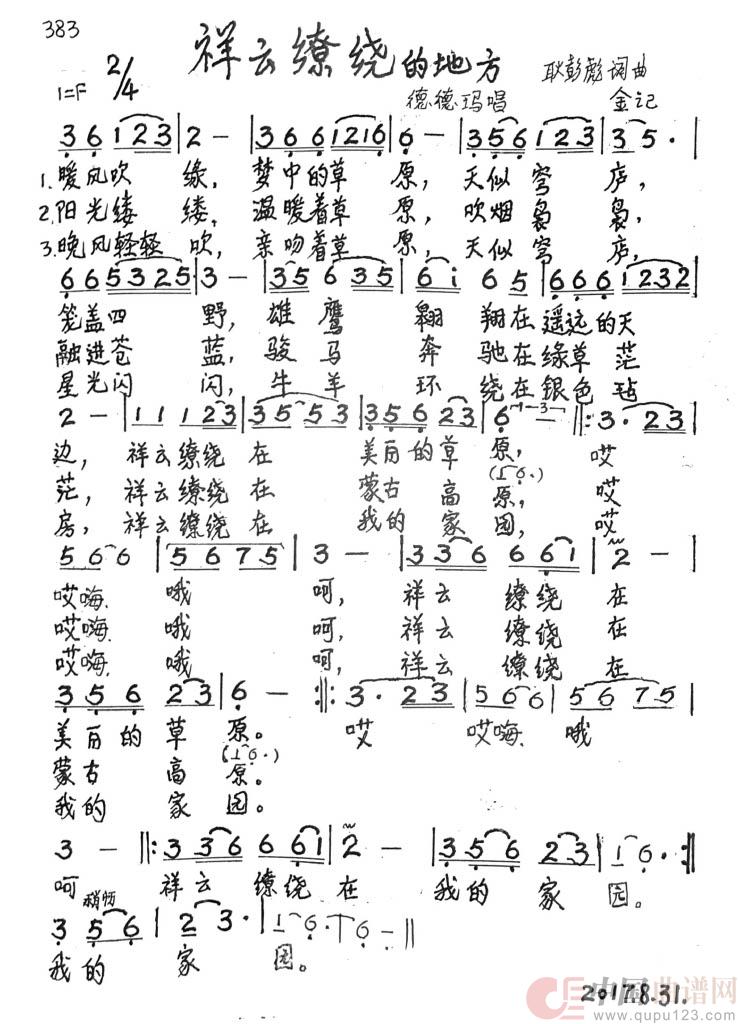 383
祥云缭绕的地方
耿彭彪词曲
1=F 2/4
德德玛唱 金记
3 6 1 2 3 | 2 — | 3 6 6 1 2 1 6 | 6 — | 3 5 6 1 2 3 | 3 5 · |
1. 暖风吹 绿, 梦中的草 原, 天似 穹 庐,
2. 阳光缕 缕, 温暖着草 原, 吹烟 袅 袅,
3. 晚风轻轻 吹, 亲吻着草 原, 天似 穹 庐,
6 6 5 3 2 5 | 3 — | 3 5 6 3 5 | 6 i 6 5 | 6 6 6 1 2 3 2 |
笼盖四 野, 雄 鹰 翱 翔在 遥远的天
融进苍 蓝, 骏 马 奔 驰在 绿草 茫
星光闪 闪, 牛 羊 环 绕在 银色 毡
2 — | 1 1 1 2 3 | 3 5 5 3 | 3 5 6 2 3 | 6 — ‖: 3 · 2 3 |
边, 祥云缭绕 在 美丽的草 原, 哎
(1 6 ·)
茫, 祥云缭绕 在 蒙古 高 原, 哎
房, 祥云缭绕 在 我的 家 园, 哎
5 6 6 | 5 6 7 5 | 3 — | 3 3 6 6 6 1 | 2 — |
哎嗨 哦 呵, 祥云 缭绕 在
哎嗨 哦 呵, 祥云 缭绕 在
哎嗨 哦 呵, 祥云 缭绕 在
3 5 6 2 3 | 6 — :‖: 3 · 2 3 | 5 6 6 | 5 6 7 5 |
美丽的 草 原。 哎 哎嗨 哦
(1 6 ·)
蒙古 高 原。
我的 家 园。
3 — ‖: 3 3 6 6 6 1 | 2 — | 3 5 6 2 3 | 1 6 · :‖
呵 祥云 缭绕 在 我的 家 园。
3 5 6 | 2 3 · | 1 6 · | 1 6 · | 6 — ‖
我的 家 园。
2017.8.31.
中国曲谱网
www.qupu123.com